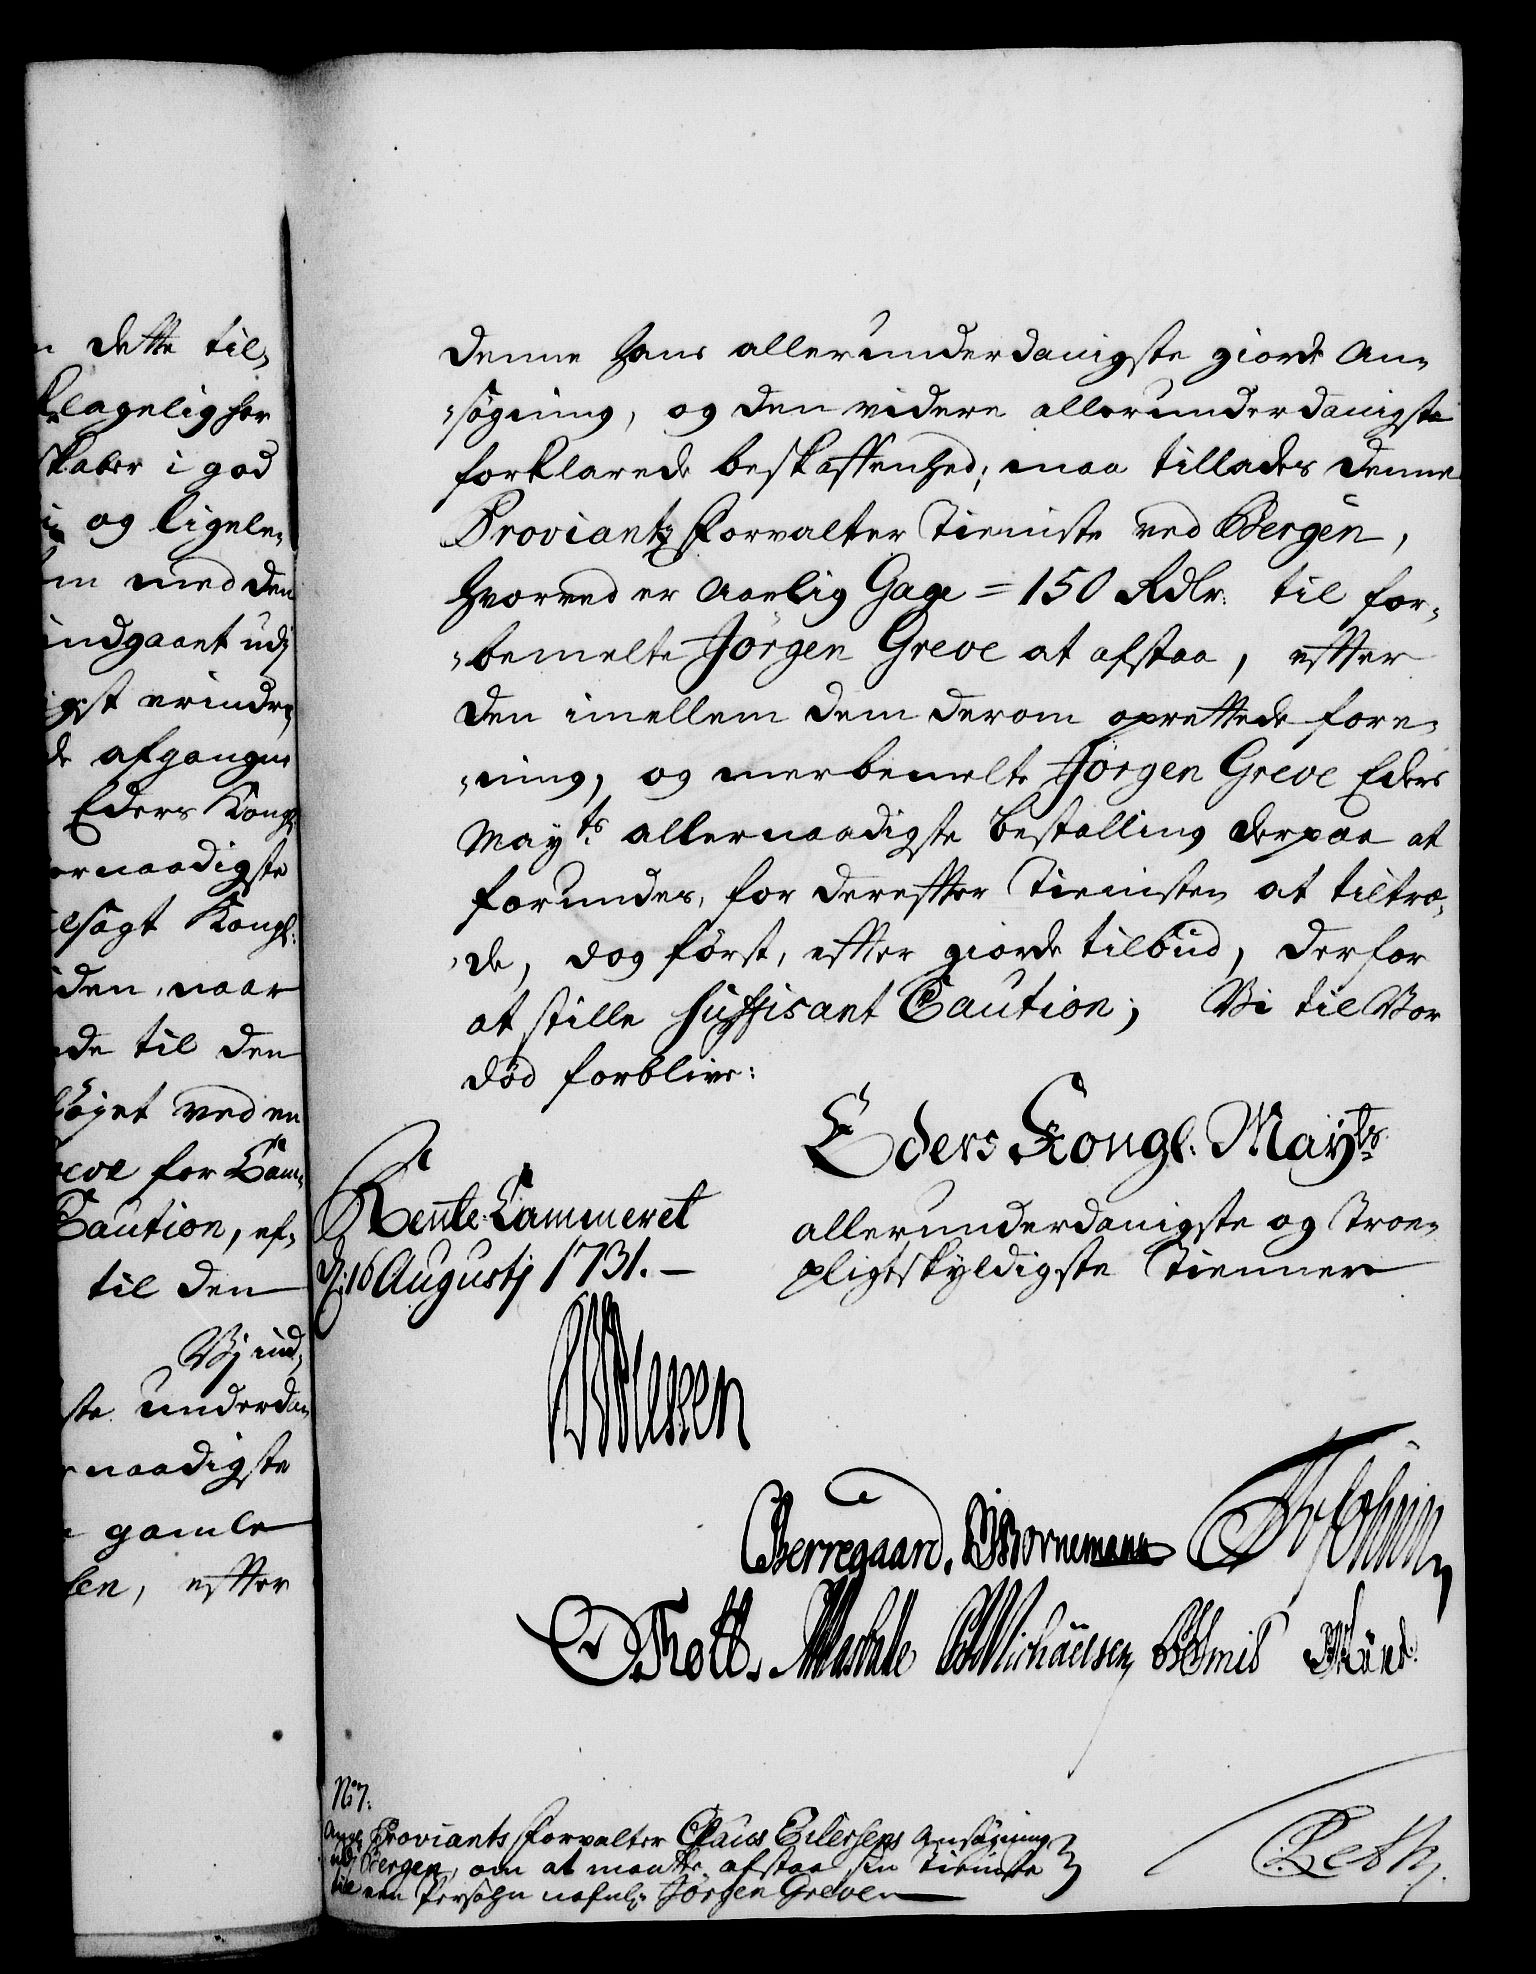 n dette til„
klageligsor
skaber i god
og ligele„
om med den
indgaaet udj
igst erindre„
de afgangne
Eders Kongl:
ernaadigste
ilsagt Kongl:
iden, naar
nde til den
föjet ved en
reve for Cam„
Caution, ef„
til den
Vj ind„
ste underda„
rnaadigste
gamle
sen, effter
denne hans allerunderdanigste giorde An„
„sögning, og den videre allerunderdanigste
forklarede beskaffenhed; maa tillades denne
Proviantz Forvalter Tieniste ved Bergen,
hvorved er Aarlig Gage = 150 Rdlr: til for„
„bemelte Jörgen Greve at afstaa, effter
den imellem dem derom oprettede fore„
„ning, og merbemelte Jörgen Greve Eders
Mayts allernaadigste Bestalling derpaa at
forundes, for dereffter Tienisten at tiltræ„
„de, dog först, effter giorde tilbud, derfor
at stille suffisant Caution; Vi til Vor
död forblive:
Eders Kongl: Mayts
allerunderdanigste og Troe„
pligtskyldigste Tiennere
Rente-Cammeret
d: 16 Augustj 1731. —
CAvPlessen
Berregaard. Bornemann
OThott. Maschle Michaelsen
No 7.
Ang: Proviants Forvalter Claus Eilersens Ansögning
udj Bergen, om at maatte afstaa sin Tieniste
til een Persohn nafnl: Jörgen Greve